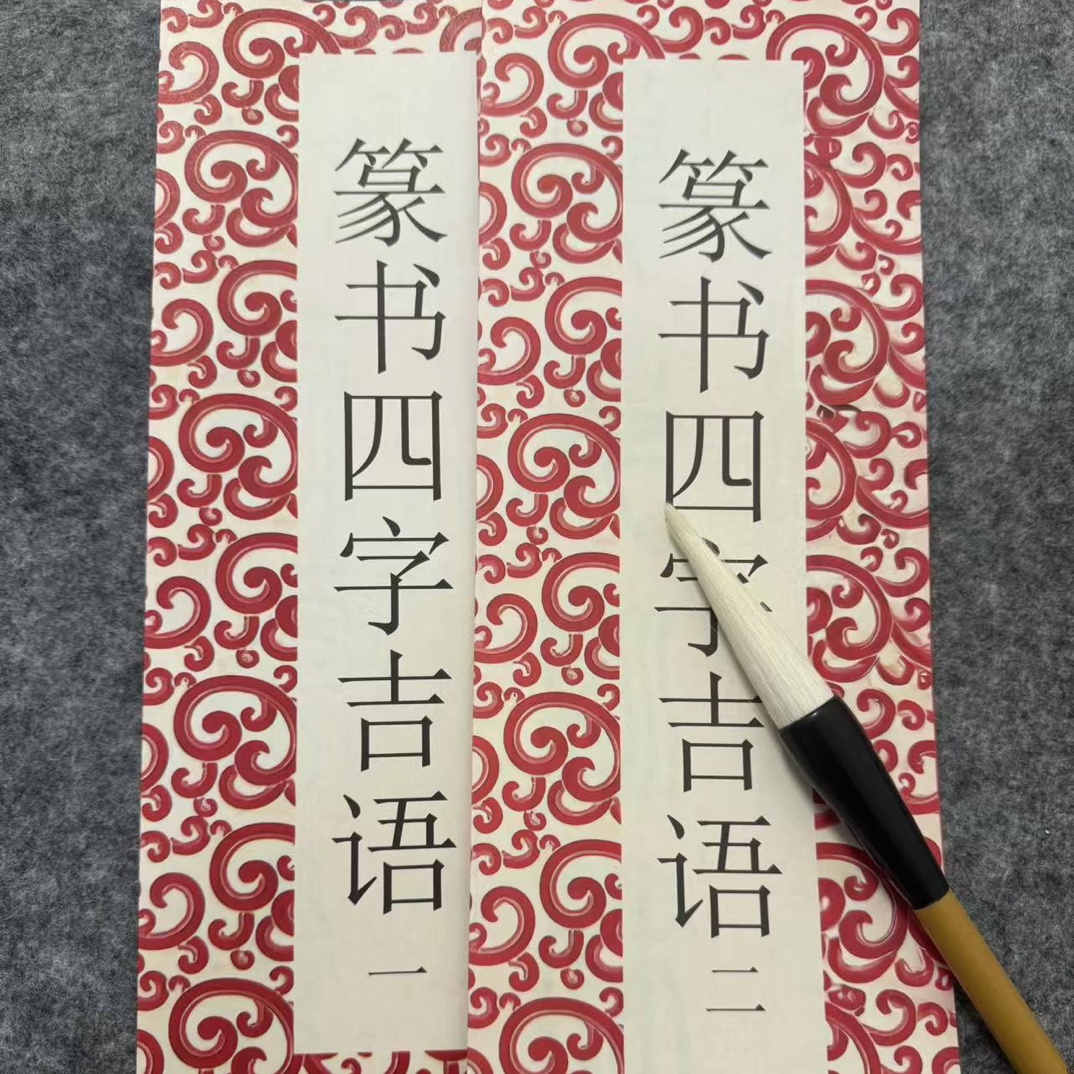 篆书四字吉语 一
篆书四字吉语 二